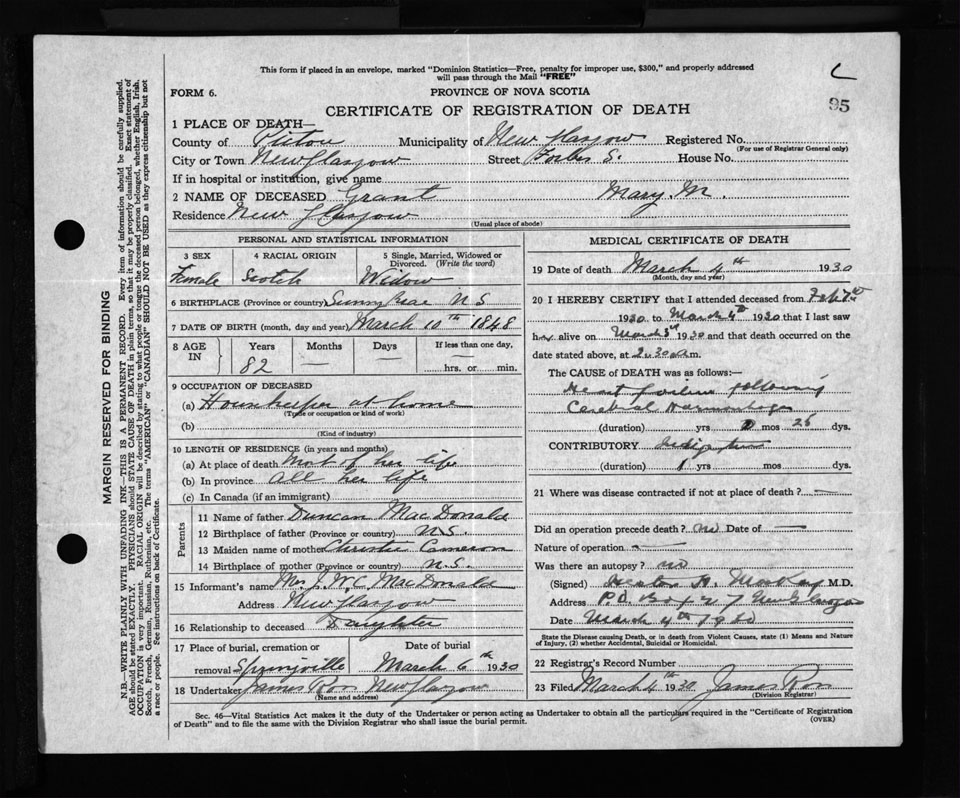 This form if placed in an envelope, marked "Dominion Statistics—Free, penalty for improper use, $300," and properly addressed
will pass through the Mail "FREE"
FORM 6.
PROVINCE OF NOVA SCOTIA
95
CERTIFICATE OF REGISTRATION OF DEATH
1 PLACE OF DEATH—
County of Pictou Municipality of New Glasgow Registered No.
(For use of Registrar General only)
City or Town New Glasgow Street Forbes S. House No.
If in hospital or institution, give name
2 NAME OF DECEASED Grant Mary M.
Residence New Glasgow
(Usual place of abode)
PERSONAL AND STATISTICAL INFORMATION
3 SEX 4 RACIAL ORIGIN 5 Single, Married, Widowed or Divorced. (Write the word)
Female Scotch Widow
6 BIRTHPLACE (Province or country) Sunny Brae N S
7 DATE OF BIRTH (month, day and year) March 10th 1848
8 AGE IN Years Months Days If less than one day,
82 — — hrs. or min.
9 OCCUPATION OF DECEASED
(a) Housekeeper at home
(Trade or occupation or kind of work)
(b)
(Kind of industry)
10 LENGTH OF RESIDENCE (in years and months)
(a) At place of death Most of her life
(b) In province All her life
(c) In Canada (if an immigrant)
Parents
11 Name of father Duncan MacDonald
12 Birthplace of father (Province or country) N.S.
13 Maiden name of mother Christie Cameron
14 Birthplace of mother (Province or country) N.S.
15 Informant's name Mrs J. W. C. MacDonald
Address New Glasgow
16 Relationship to deceased Daughter
17 Place of burial, cremation or Date of burial
removal Springville March 6th 1930
18 Undertaker James Ross New Glasgow
(Name and address)
MEDICAL CERTIFICATE OF DEATH
19 Date of death March 4th 1930
(Month, day and year)
20 I HEREBY CERTIFY that I attended deceased from Feb 7th
1930 to March 4th 1930 that I last saw
her alive on March 3rd 1930 and that death occurred on the
date stated above, at 2.30 a.m.
The CAUSE of DEATH was as follows:—
Heart failure following
Cerebral Haemorrhage
(duration) yrs mos 25 dys.
CONTRIBUTORY
(duration) 1 yrs mos dys.
21 Where was disease contracted if not at place of death? —
Did an operation precede death? no Date of —
Nature of operation —
Was there an autopsy? no
(Signed) H. MacKay M.D.
Address P.O. Box 27 New Glasgow
Date March 4th 1930
State the Disease causing Death, or in death from Violent Causes, state (1) Means and Nature
of Injury, (2) whether Accidental, Suicidal or Homicidal.
22 Registrar's Record Number
23 Filed March 4th 1930 James Ross
(Division Registrar)
Sec. 46—Vital Statistics Act makes it the duty of the Undertaker or person acting as Undertaker to obtain all the particulars required in the "Certificate of Registration
of Death" and to file the same with the Division Registrar who shall issue the burial permit.
(OVER)
MARGIN RESERVED FOR BINDING
N.B.—WRITE PLAINLY, WITH UNFADING INK—THIS IS A PERMANENT RECORD. Every item of information should be carefully supplied.
AGE should be stated EXACTLY. PHYSICIANS should STATE CAUSE OF DEATH in plain terms, so that it may be properly classified. Exact statement of
OCCUPATION is very important. RACIAL ORIGIN will be described by stating to what people or tongue the deceased person belonged, whether English, Irish,
Scotch, French, German, Russian, Ruthenian, etc. The terms "AMERICAN" or "CANADIAN" SHOULD NOT BE USED as they express citizenship but not
a race or people. See instructions on back of Certificate.